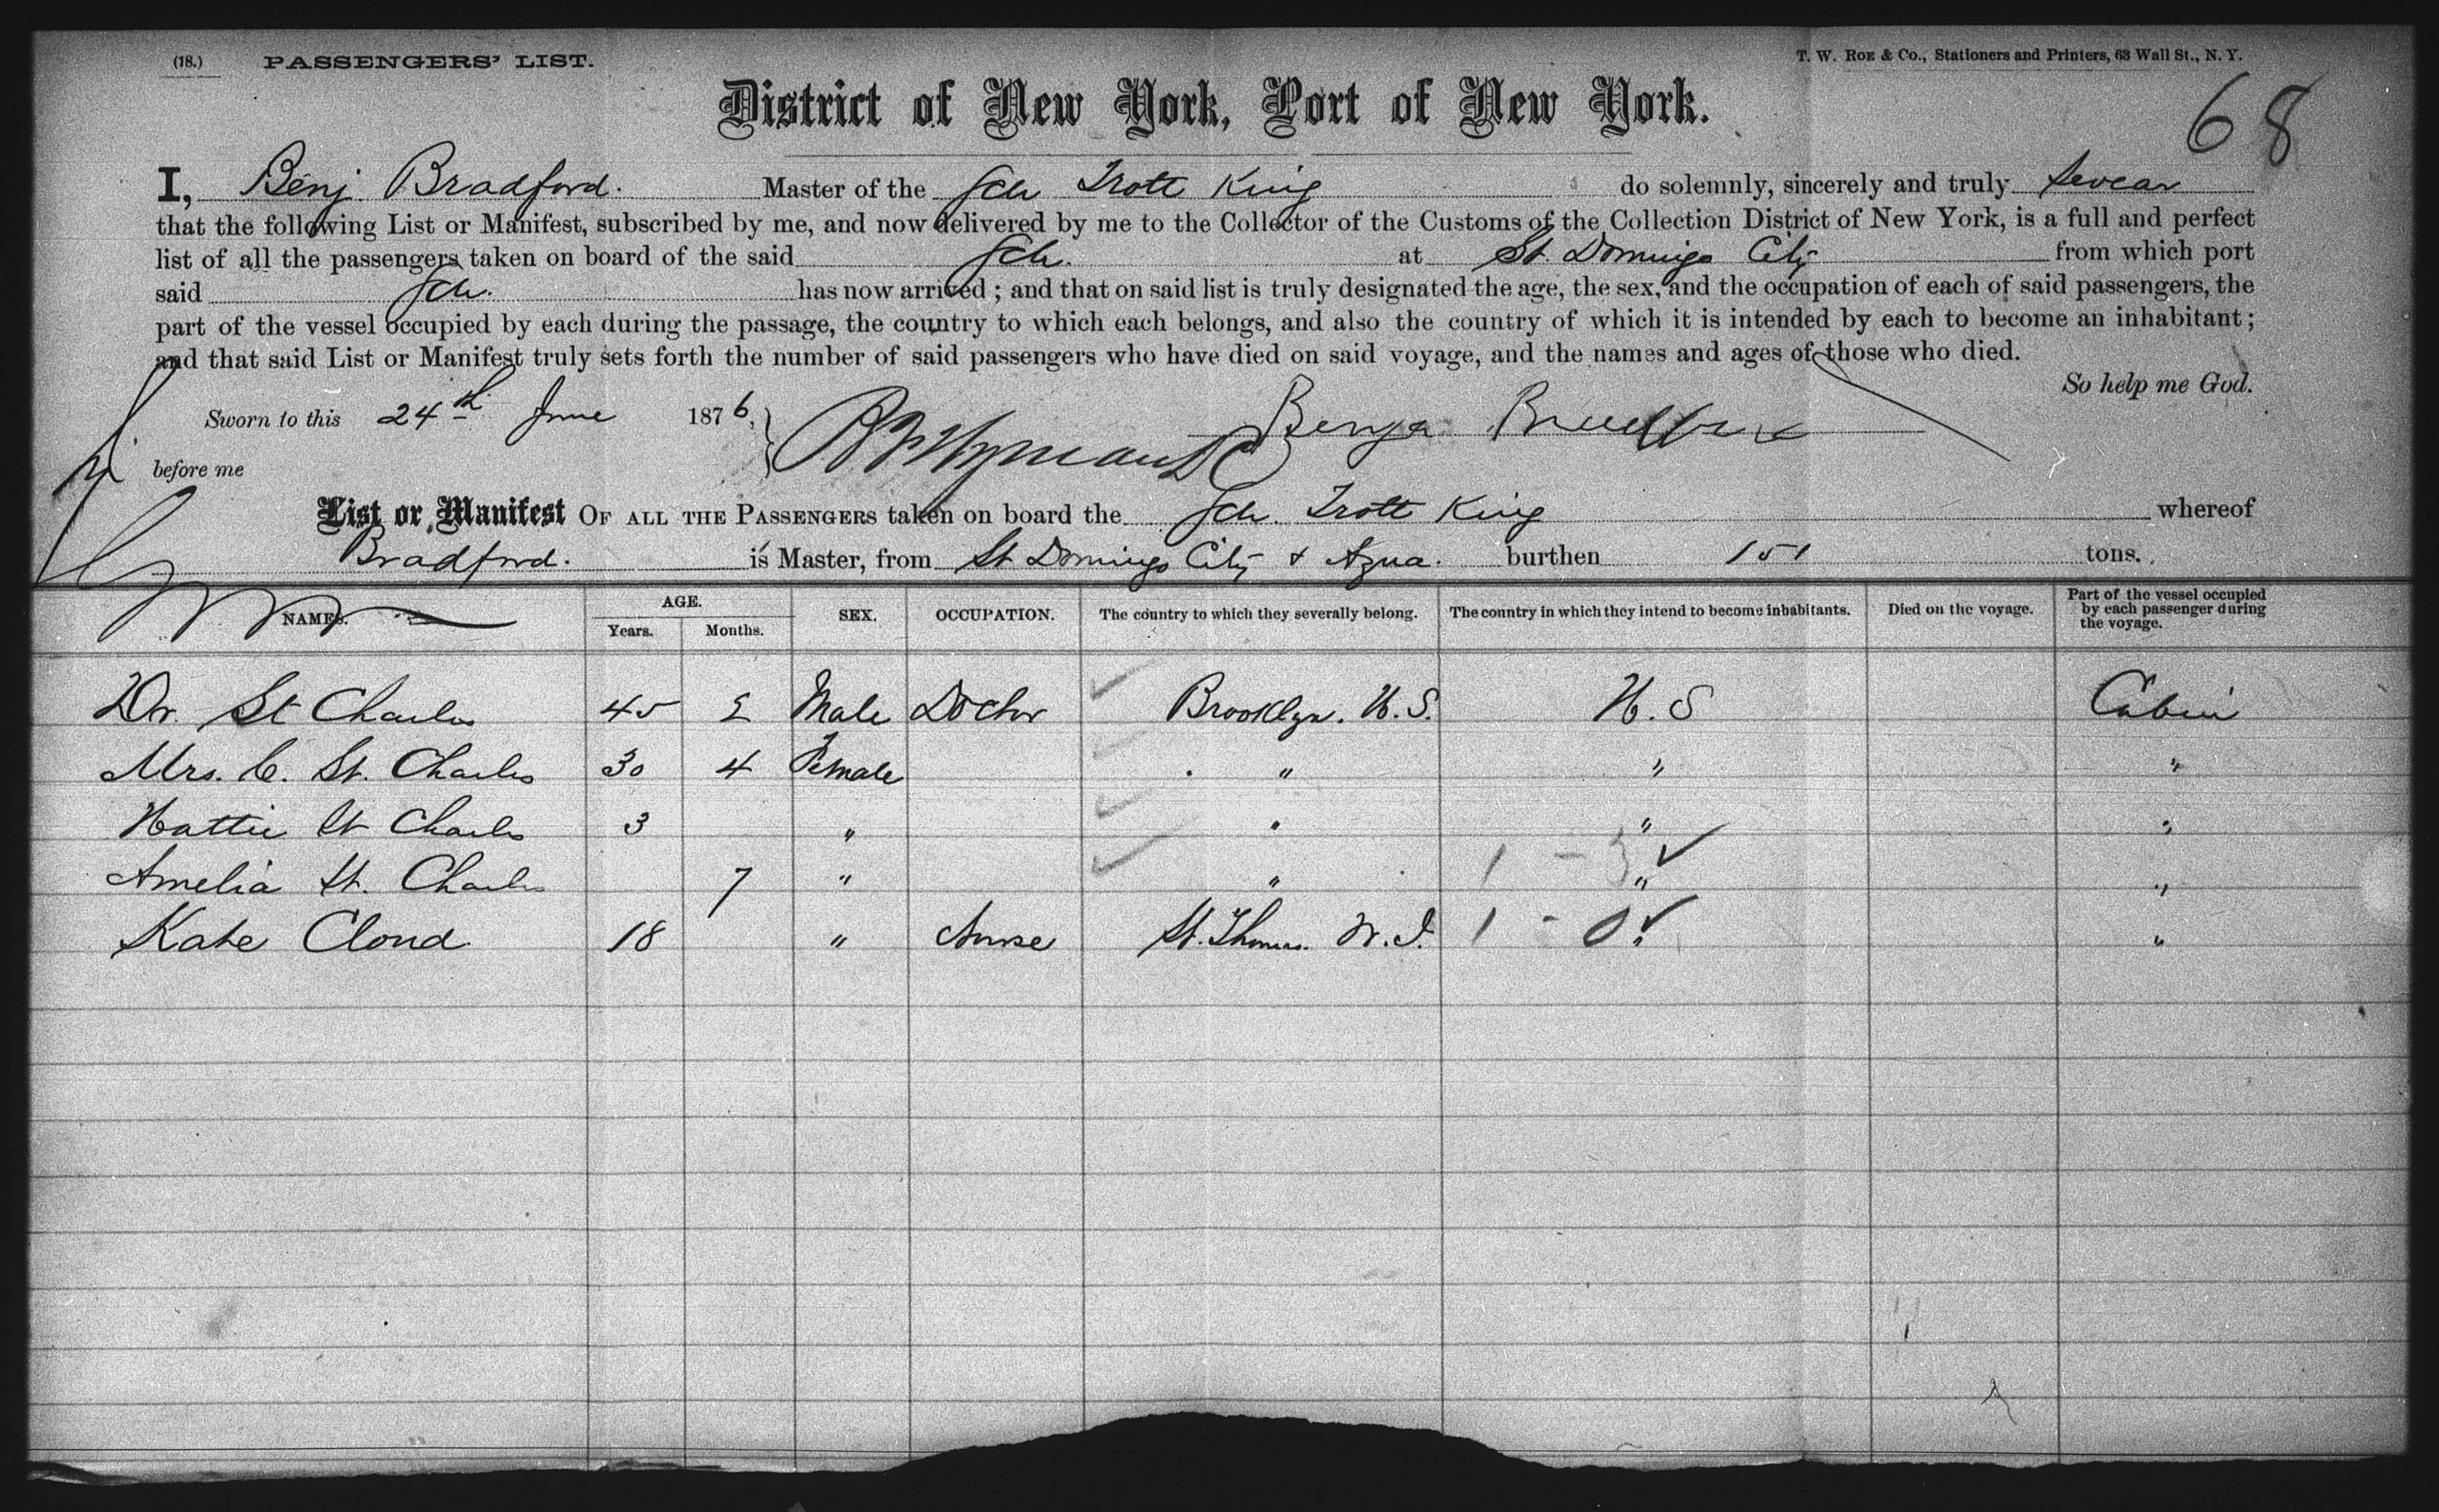 (18.) PASSENGERS' LIST. T. W. ROE & Co., Stationers and Printers, 63 Wall St., N. Y.
68
District of New York, Port of New York.
I, Benj. Bradford. Master of the Sch Trott King do solemnly, sincerely and truly swear
that the following List or Manifest, subscribed by me, and now delivered by me to the Collector of the Customs of the Collection District of New York, is a full and perfect
list of all the passengers taken on board of the said Sch. at St. Domingo City from which port
said Sch. has now arrived; and that on said list is truly designated the age, the sex, and the occupation of each of said passengers, the
part of the vessel occupied by each during the passage, the country to which each belongs, and also the country of which it is intended by each to become an inhabitant;
and that said List or Manifest truly sets forth the number of said passengers who have died on said voyage, and the names and ages of those who died.
So help me God.
Sworn to this 24th June 1876, Benja Bradford
before me
List or Manifest OF ALL THE PASSENGERS taken on board the Sch. Trott King whereof
Bradford. is Master, from St Domingo City & Azua. burthen 151 tons.
NAMES. AGE. Years. Months. SEX. OCCUPATION. The country to which they severally belong. The country in which they intend to become inhabitants. Died on the voyage. Part of the vessel occupied by each passenger during the voyage.
Dr. St Charles 45 Male Doctor Brooklyn. U.S. U.S Cabin
Mrs. C. St. Charles 30 4 Female " " "
Hattie St Charles 3 " " " "
Amelia St. Charles 7 " " 1 - 3 " "
Kate Cloud 18 " Nurse St. Thomas. W.I. 1 - 0 " "